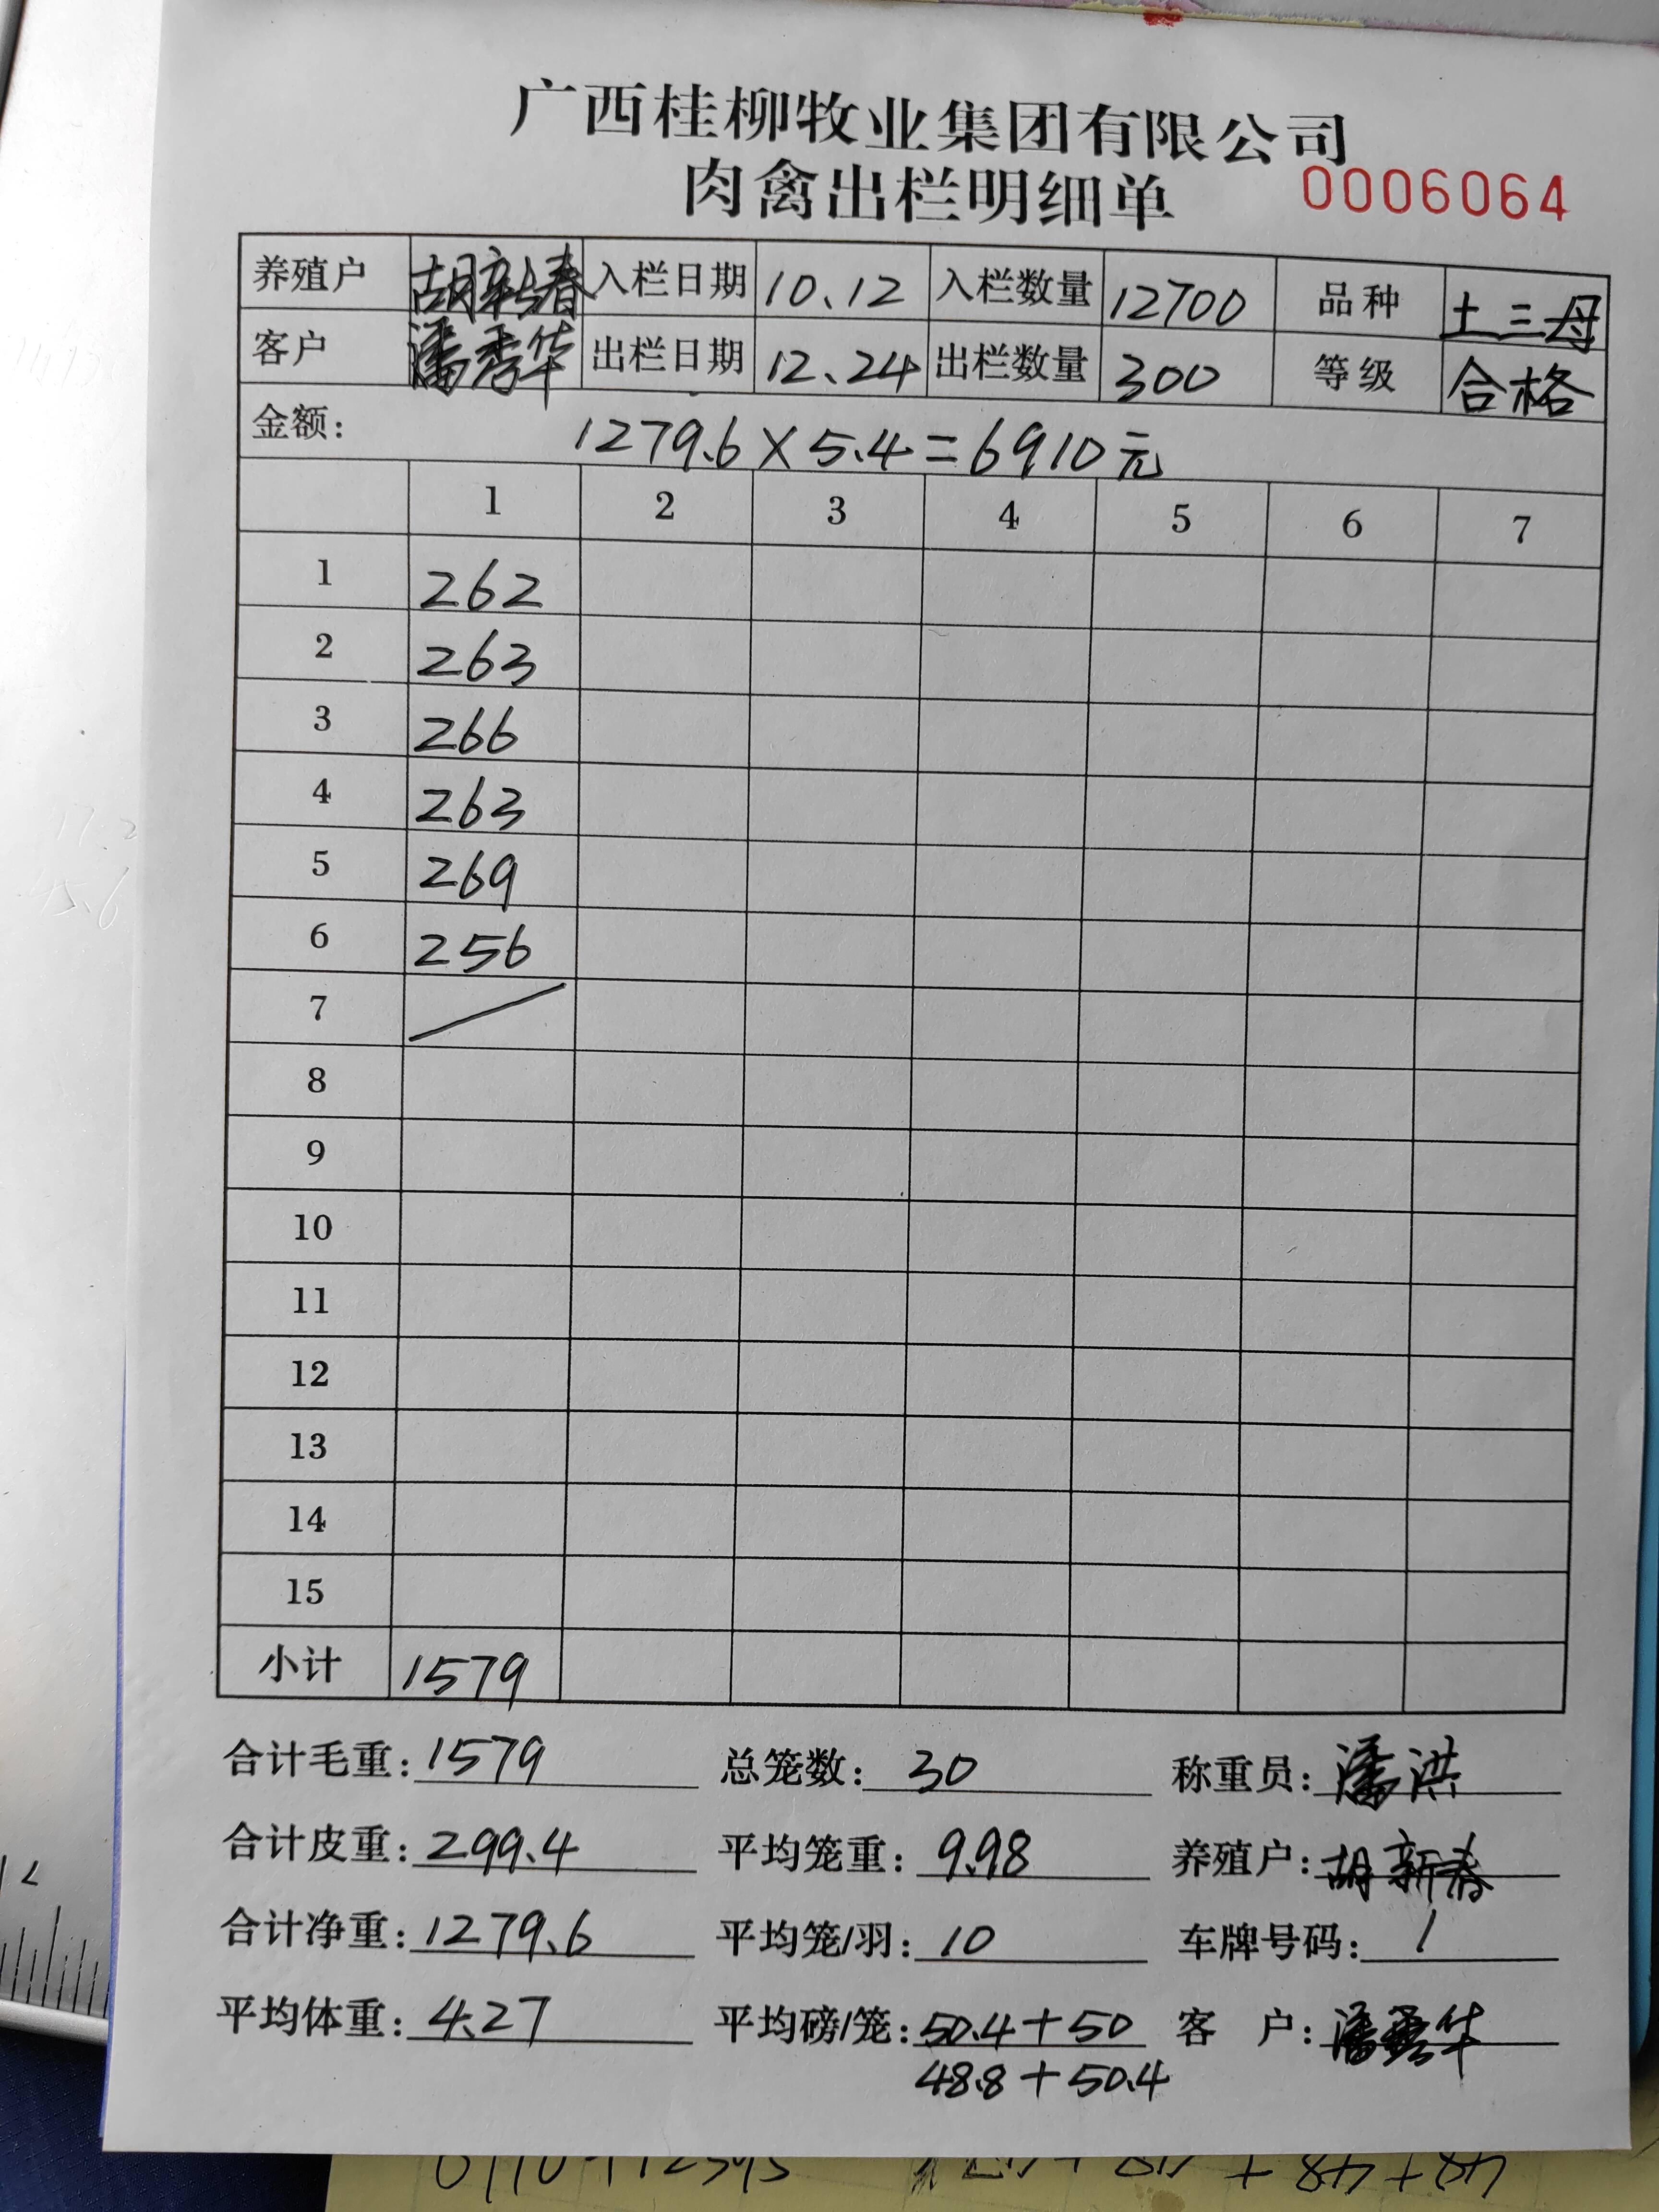 广西桂柳牧业集团有限公司
肉禽出栏明细单 0006064
养殖户 胡新春 入栏日期 10.12 入栏数量 12700 品种 土三母
客户 潘秀华 出栏日期 12.24 出栏数量 300 等级 合格
金额: 1279.6×5.4=6910元
1 2 3 4 5 6 7
1 262
2 263
3 266
4 263
5 269
6 256
7
8
9
10
11
12
13
14
15
小计 1579
合计毛重: 1579 总笼数: 30 称重员: 潘洪
合计皮重: 299.4 平均笼重: 9.98 养殖户: 胡新春
合计净重: 1279.6 平均笼/羽: 10 车牌号码: 1
平均体重: 4.27 平均磅/笼: 50.4+50 客户: 潘秀华
48.8+50.4